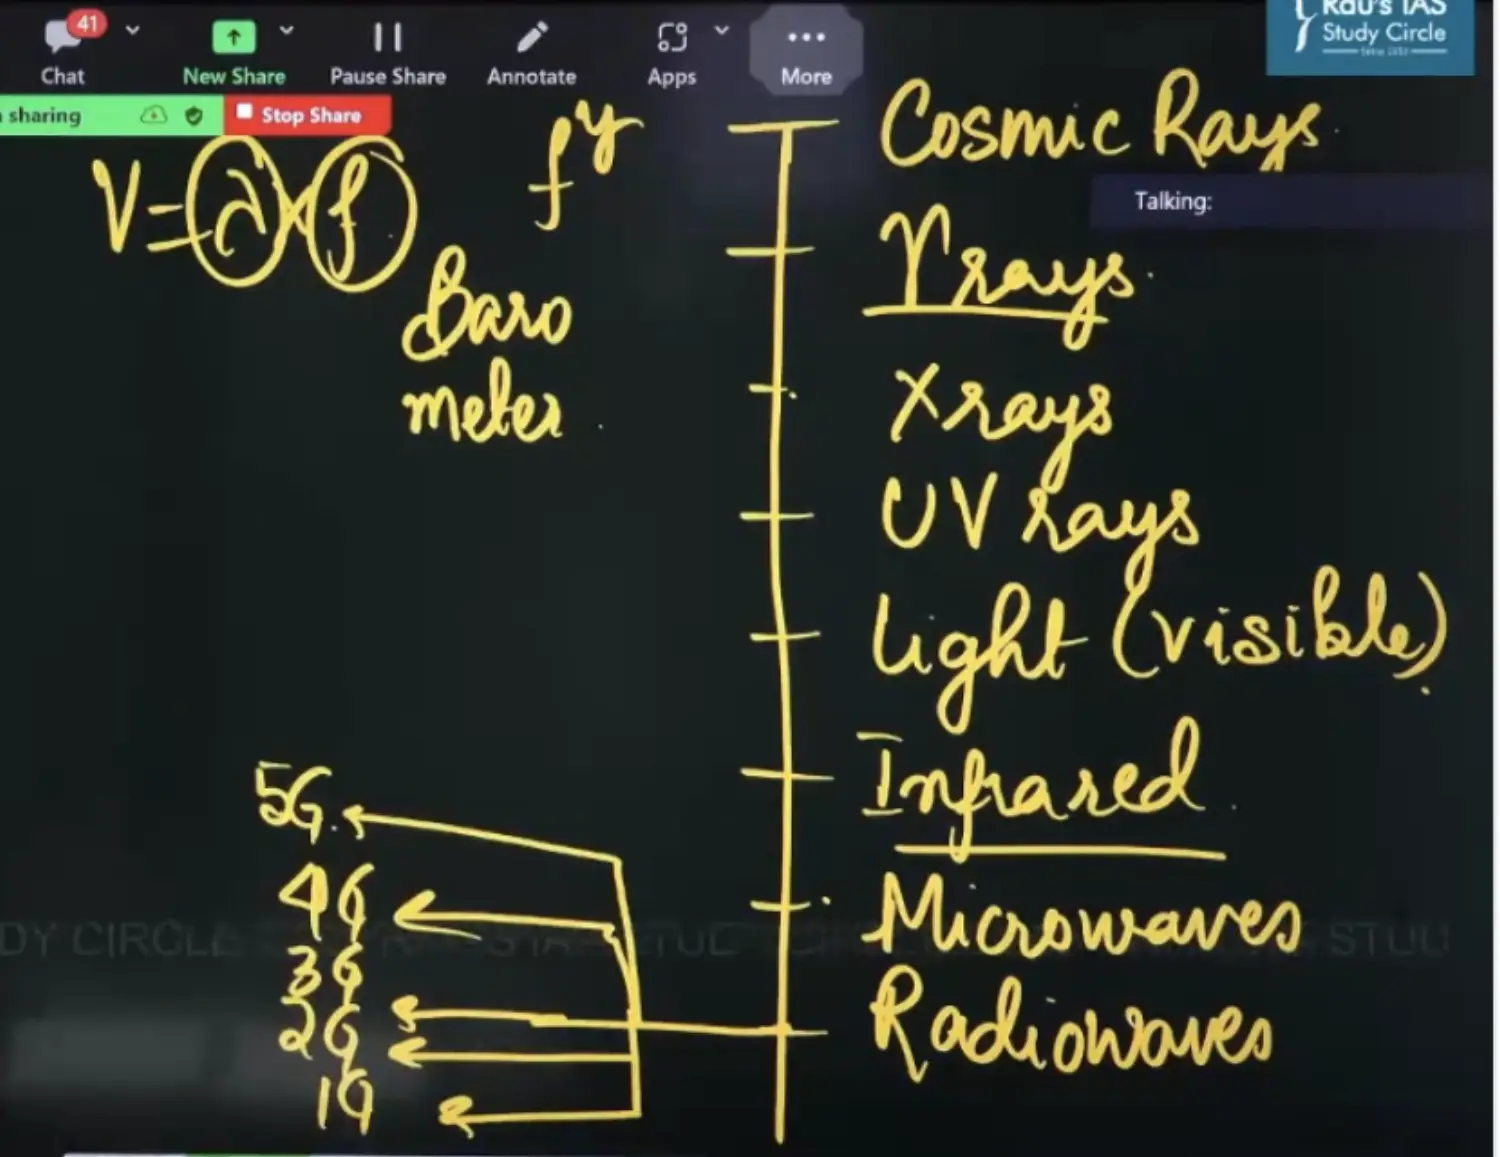 41
Chat
New Share
Pause Share
Annotate
Apps
More
Rau's IAS
Study Circle
sharing
Stop Share
Talking:
V=λ×f
fy
Baro
meter
Cosmic Rays
γ rays
X rays
UV rays
Light (visible)
Infrared
Microwaves
Radiowaves
5G
4G
3G
2G
1G
DY CIRCLE
STUD